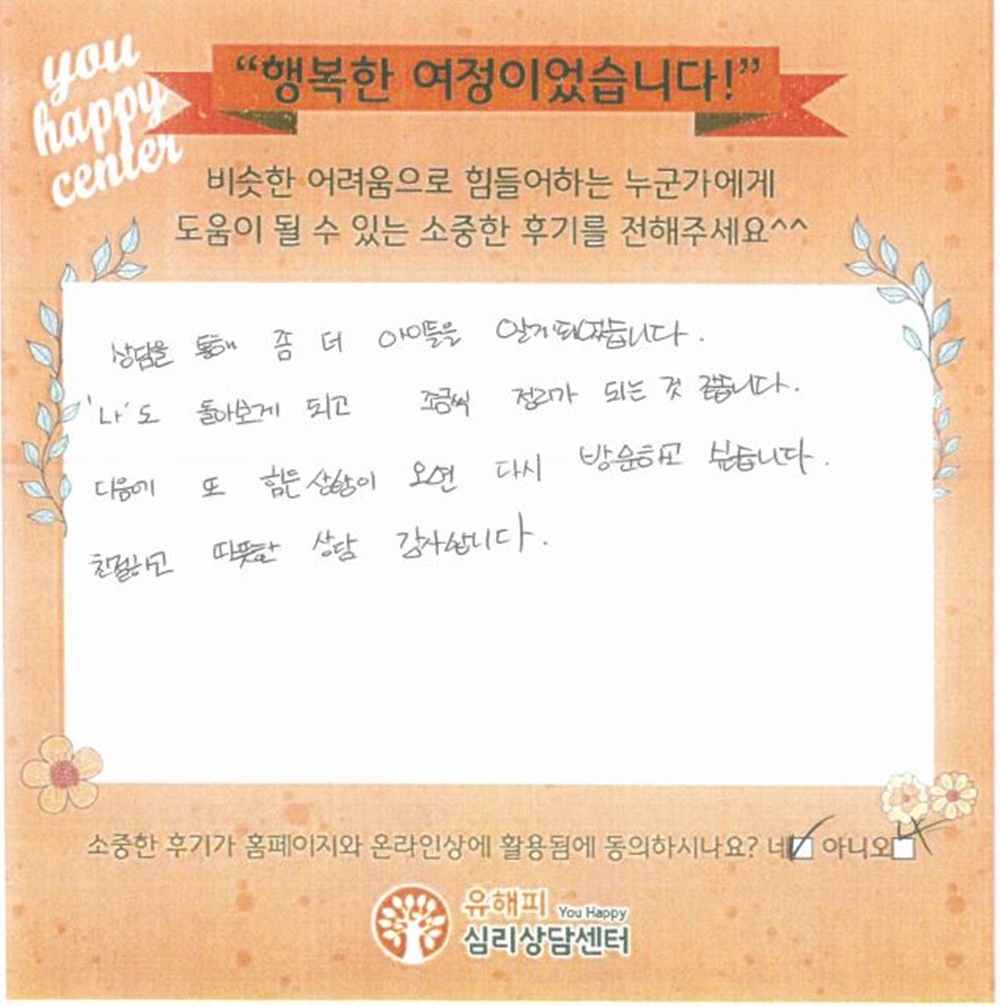 you
happy
center
“행복한 여정이었습니다!”
비슷한 어려움으로 힘들어하는 누군가에게
도움이 될 수 있는 소중한 후기를 전해주세요^^
상담을 통해 좀 더 아이들을 알게 되었습니다.
'나'도 돌아보게 되고 조금씩 정리가 되는 것 같습니다.
다음에 또 힘든 상황이 오면 다시 방문하고 싶습니다.
친절하고 따뜻한 상담 감사합니다.
소중한 후기가 홈페이지와 온라인상에 활용됨에 동의하시나요? 네 아니오
유해피 You Happy
심리상담센터